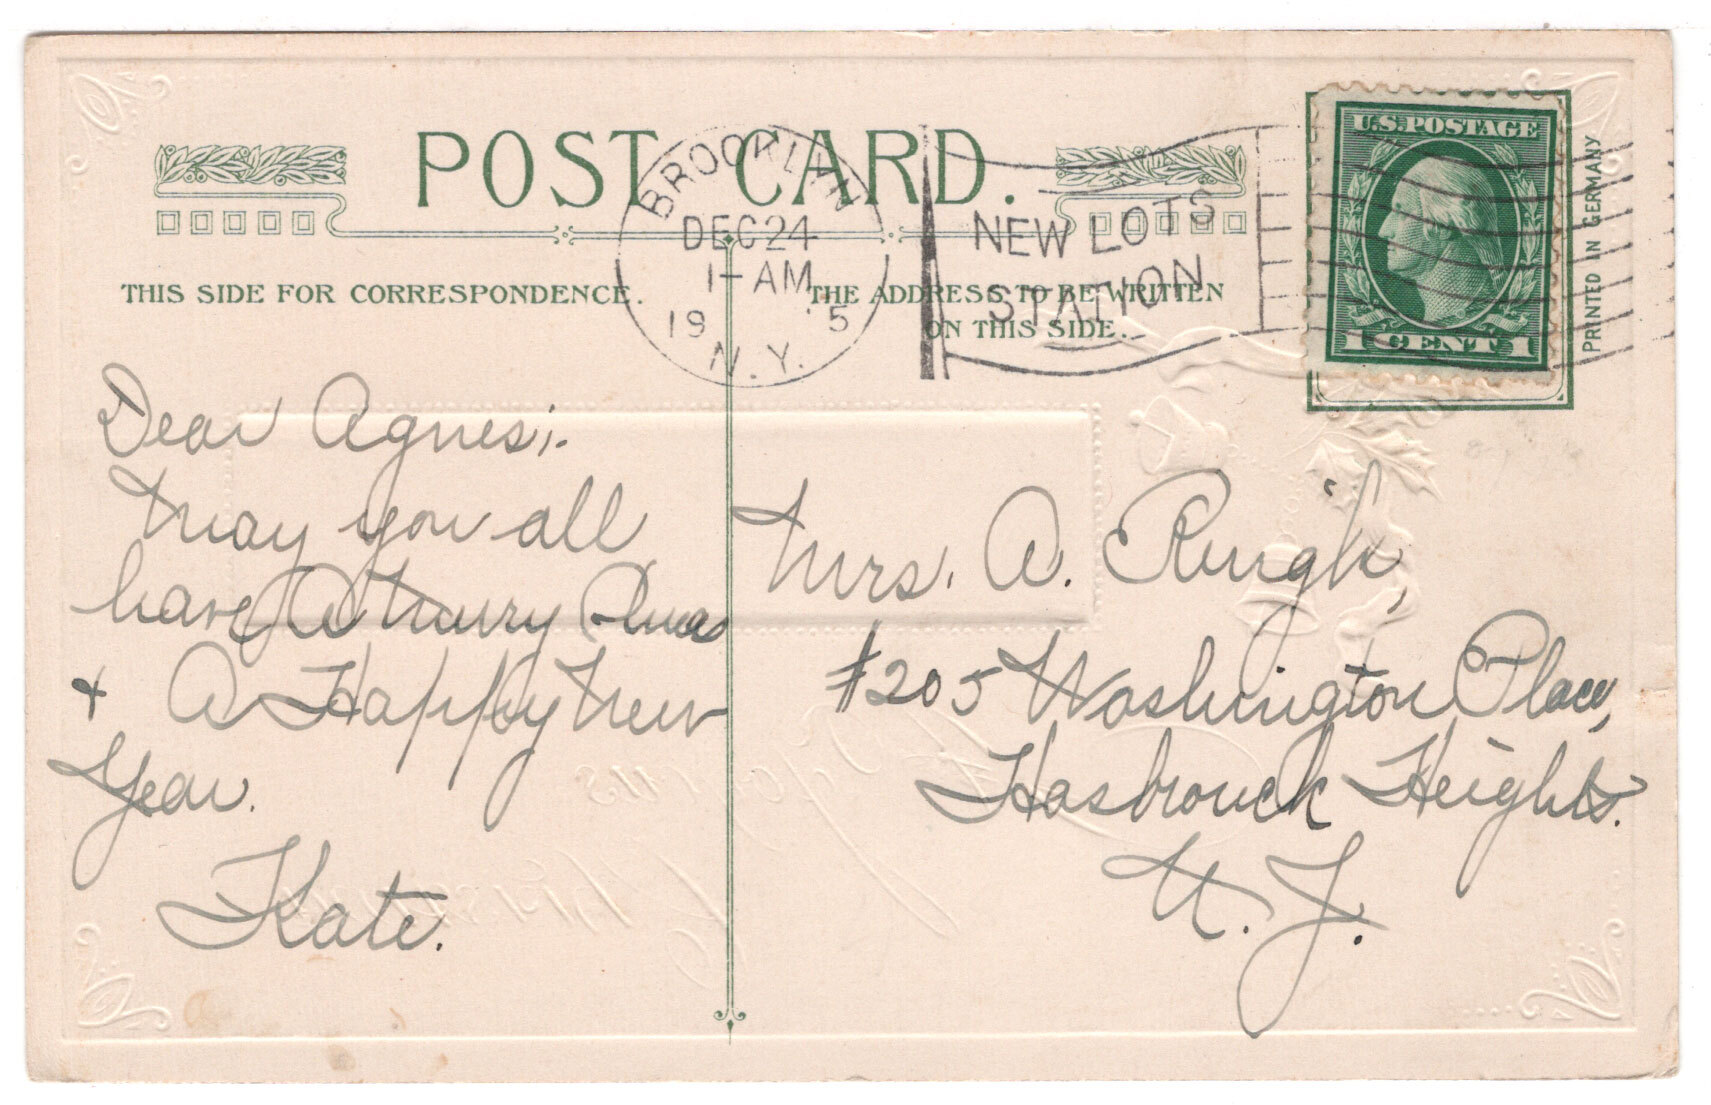 POST CARD.
BROOKLYN
DEC 24
1-AM
19 5
N.Y.
NEW LOTS
STATION
U.S. POSTAGE
1 CENT 1
PRINTED IN GERMANY
THIS SIDE FOR CORRESPONDENCE.
THE ADDRESS TO BE WRITTEN
ON THIS SIDE.
Dear Agnes;-
May you all
have A Merry Xmas
+ A Happy New
Year.
Kate.
Mrs. A.
#205 Washington Place,
Hasbrouck Heights.
N. J.